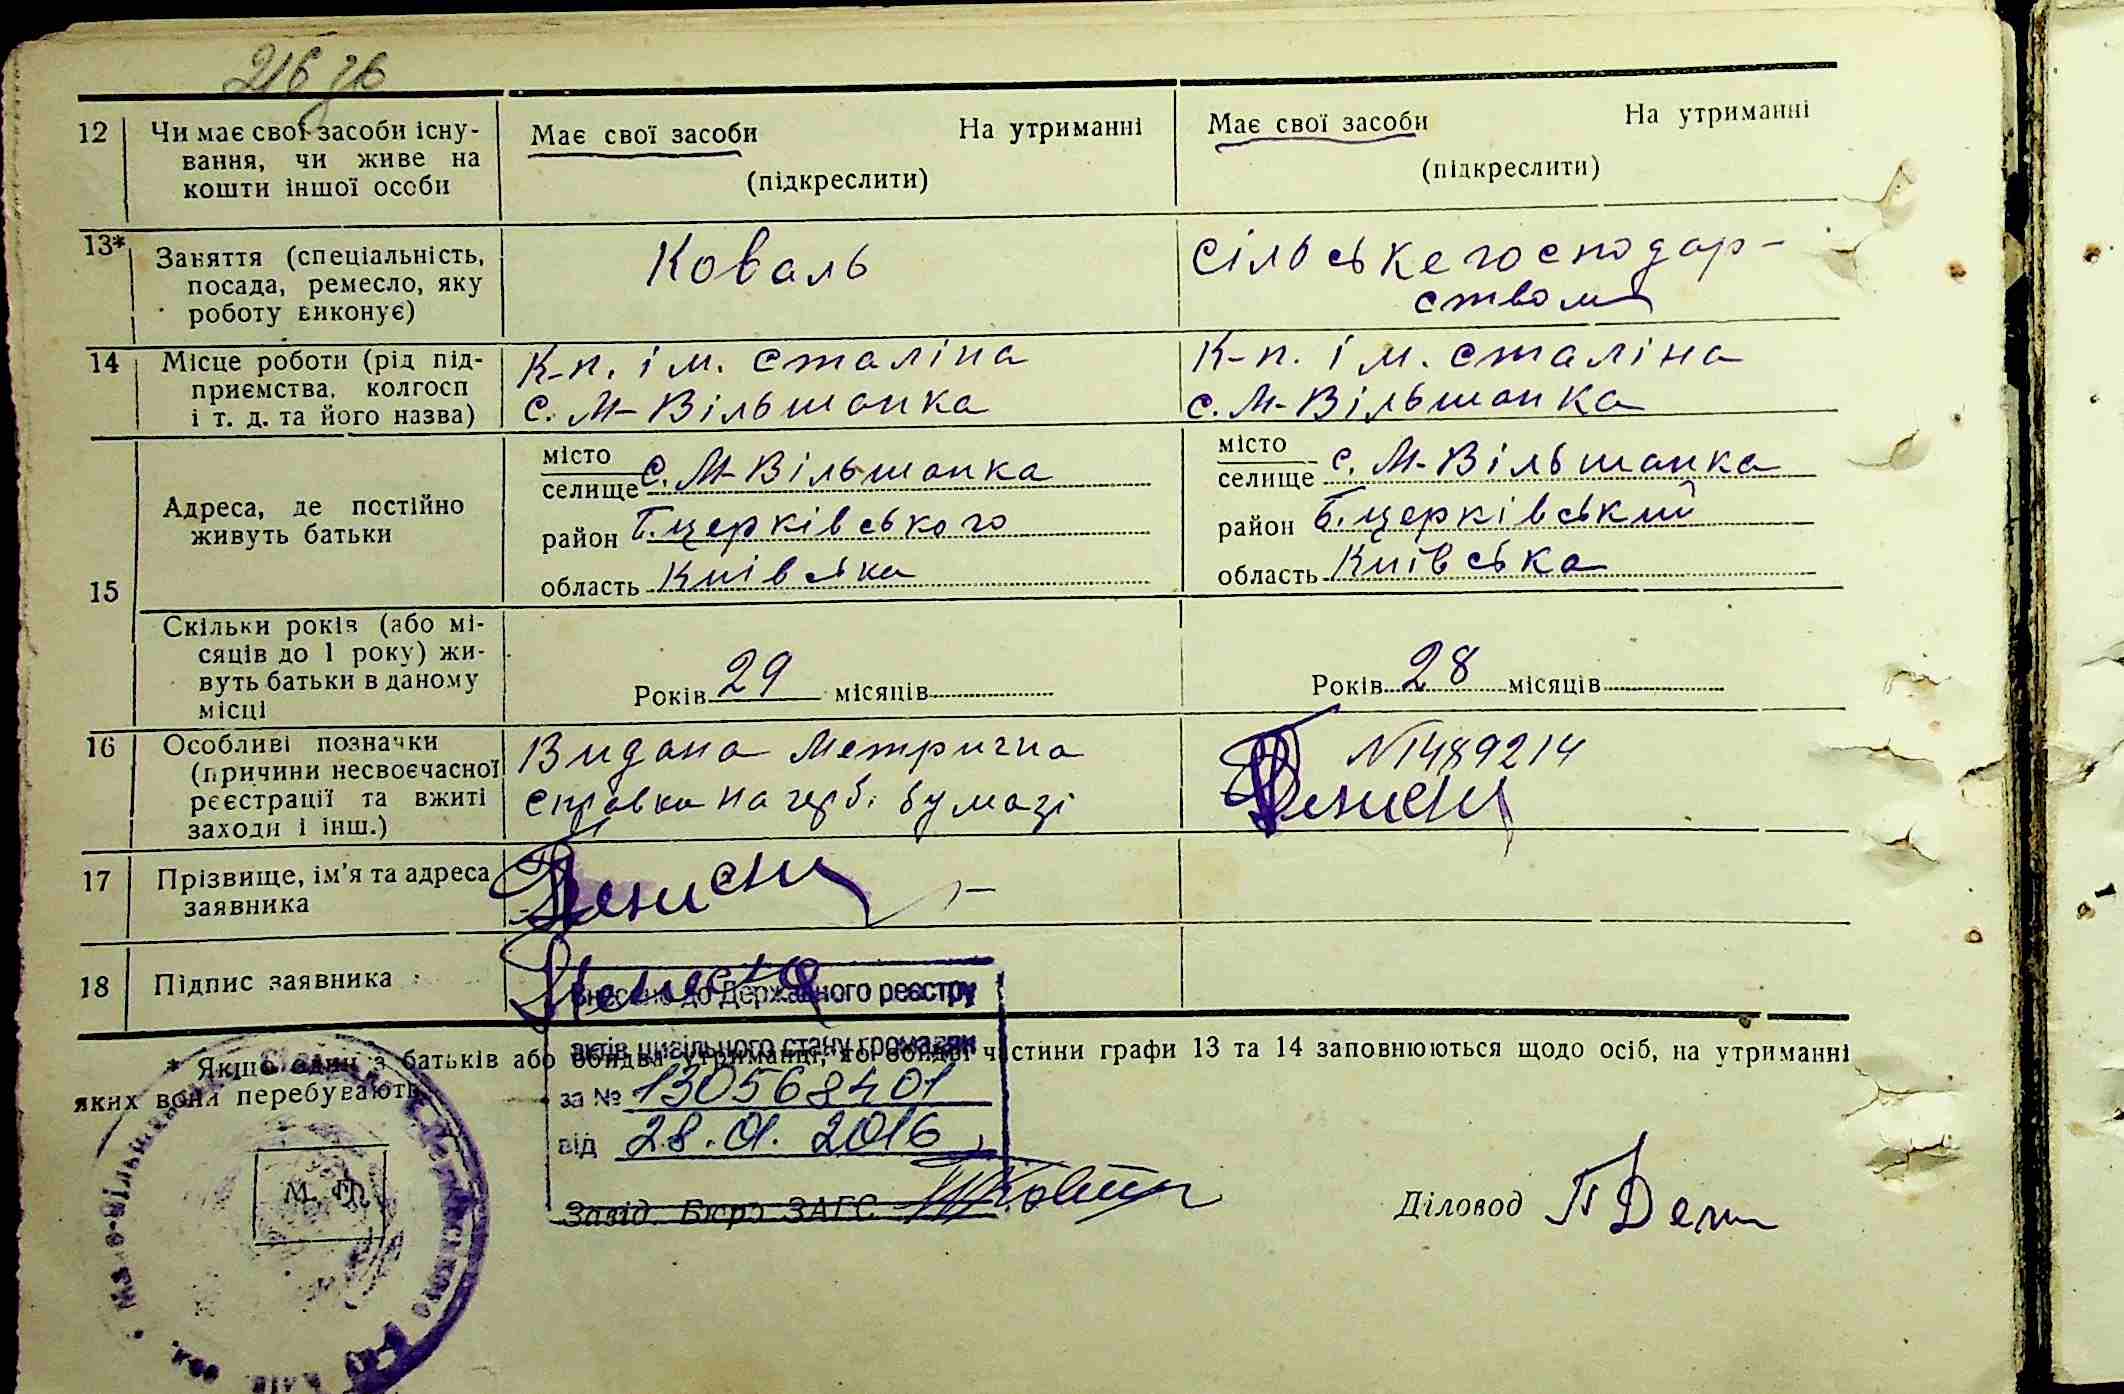 216 зв
12 Чи має свої засоби існу- Має свої засоби На утриманні Має свої засоби На утриманні
вання, чи живе на (підкреслити) (підкреслити)
кошти іншої особи
13* Заняття (спеціальність, Коваль Сільське господар-
посада, ремесло, яку ством
роботу виконує)
14 Місце роботи (рід під- К-п. ім. Сталіна К-п. ім. Сталіна
приємства, колгосп с. М-Вільшанка с. М-Вільшанка
і т. д. та його назва)
15 Адреса, де постійно місто місто
живуть батьки селище с. М-Вільшанка селище с. М-Вільшанка
район Б.церківського район Б.церківський
область Київська область Київська
Скільки років (або мі- Років 29 місяців Років 28 місяців
сяців до 1 року) жи-
вуть батьки в даному
місці
16 Особливі позначки Видана Метрична №1489214
(причини несвоєчасної справка на герб. бумазі
реєстрації та вжиті
заходи і інш.)
17 Прізвище, ім'я та адреса
заявника
18 Підпис заявника
Внесено до Державного реєстру
актів цивільного стану громадян
за № 130568401
від 28.01.2016
* Якщо один з батьків або обидва утриманці, то обидві частини графи 13 та 14 заповнюються щодо осіб, на утриманні
яких вони перебувають.
М. П.
Завід. Бюро ЗАГС Діловод